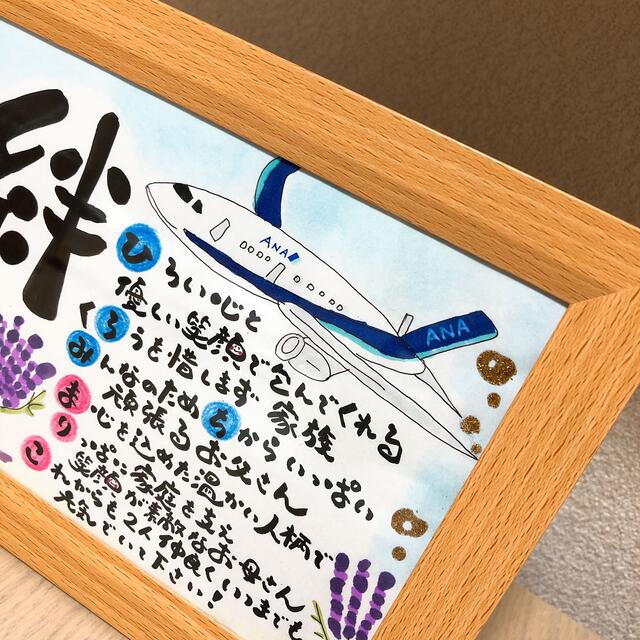 絆
ANA
ANA
ひろい心と
優しい笑顔で包んでくれる
くろうを惜します家族
みんなのためちからいっぱい
頑張るお父さん
まり心を込めた温かい人柄で
いっぱいに家庭を支え
笑顔が素敵なお母さん
これからも2人仲良くいつまでも
元気でいて下さい!